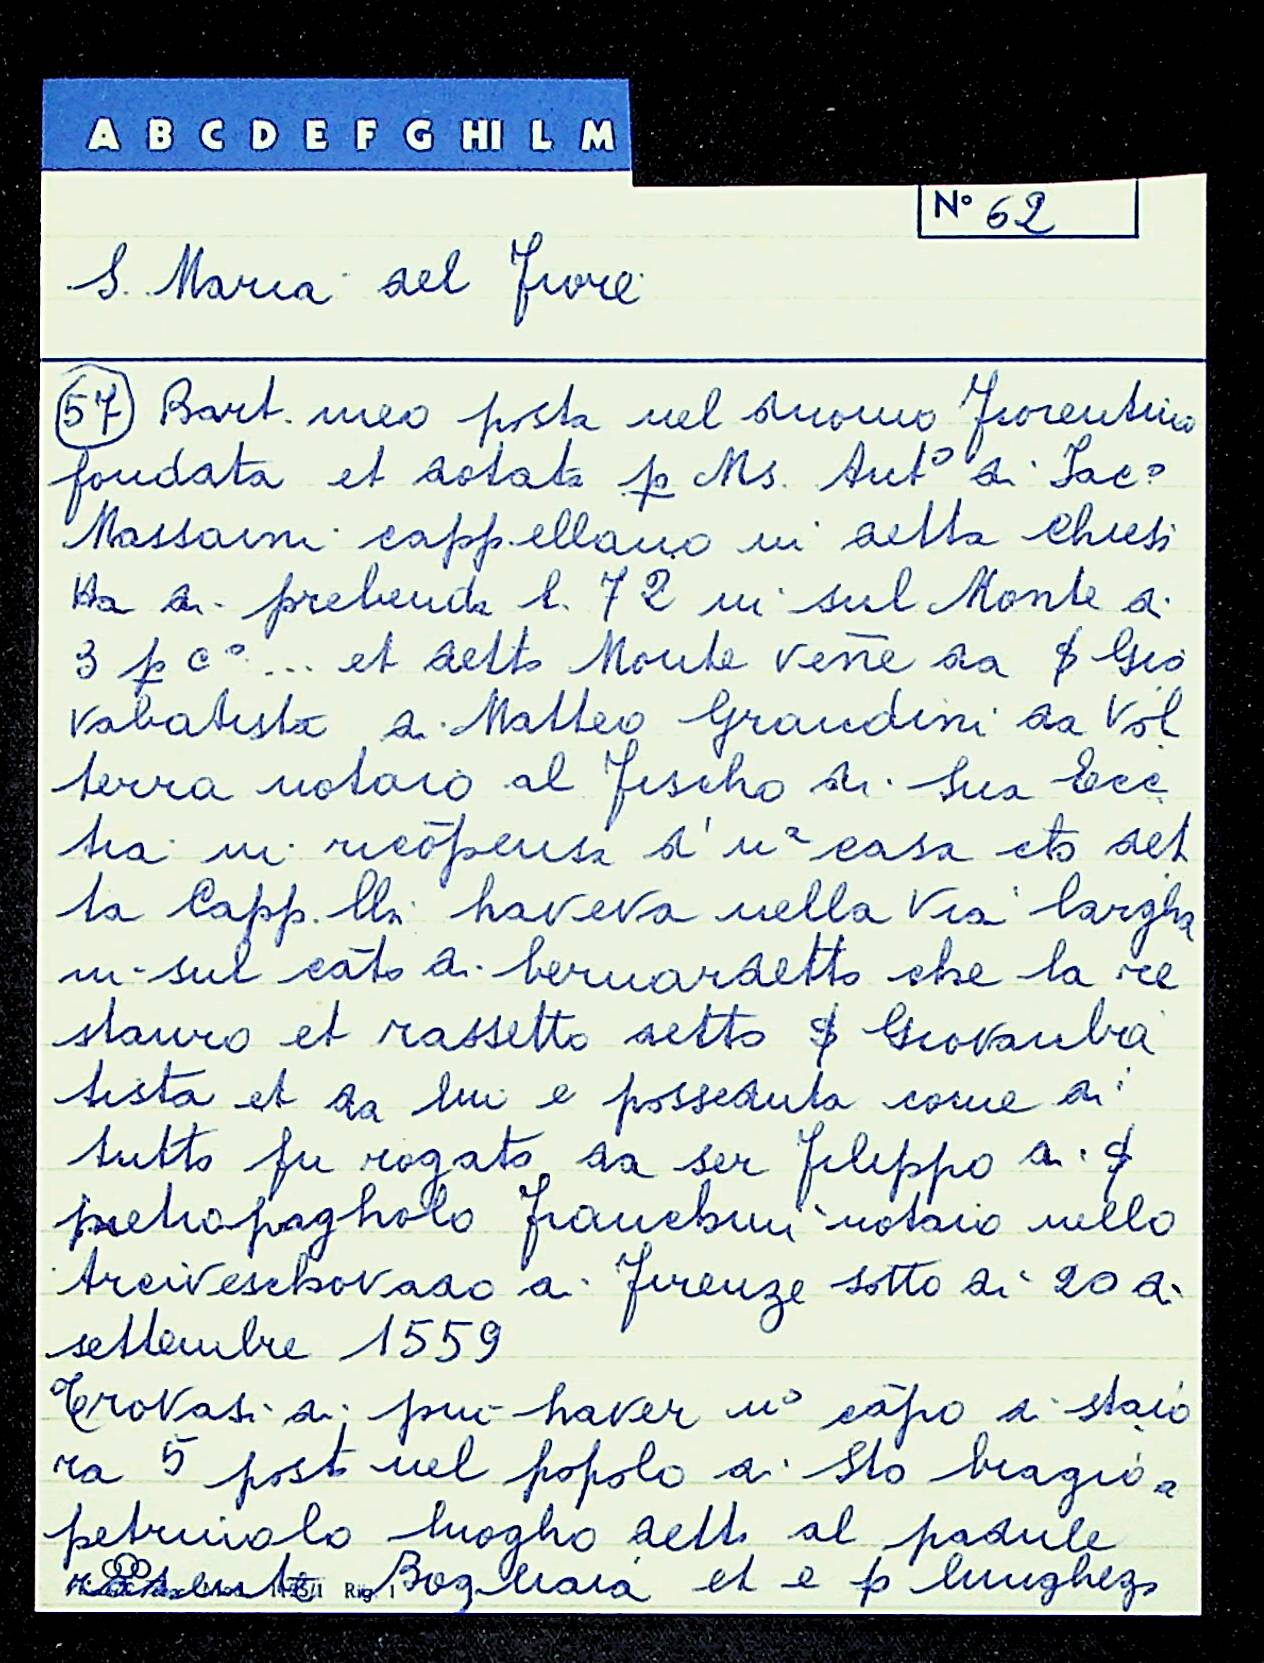 A B C D E F G HI L M
N° 62
S. Maria del Fiore
57 Bart. meo posta nel duomo Fiorentino
fondata et dotata p Ms. Ant° di Jac°
Massaini cappellano in detta chiesi
Ha di prebenda l. 72 in sul Monte di
3 p c° ... et detto Monte veñe da $ Gio
vabatista di Matteo Grandini da Vol
terra notaio al Fischo di Sua Ecc
tia in ricõpensa d'uª casa cto det
ta Capp.lla haveva nella Via largha
in sul cãto di bernardetto che la re
stauro et rassetto detto $ Giovanba
tista et da lui e posseduta come di
tutto fu rogato da ser Filippo di $
pietropagholo Franchini notaio nello
Arciveschovado di Firenze sotto di 20 di
settembre 1559
Trovasi di piu haver u° cãpo di staio
ra 5 posto nel popolo di Sto biagio a
petruiolo luogho detto al padule
rasente Bogliaia et e p lunghezo